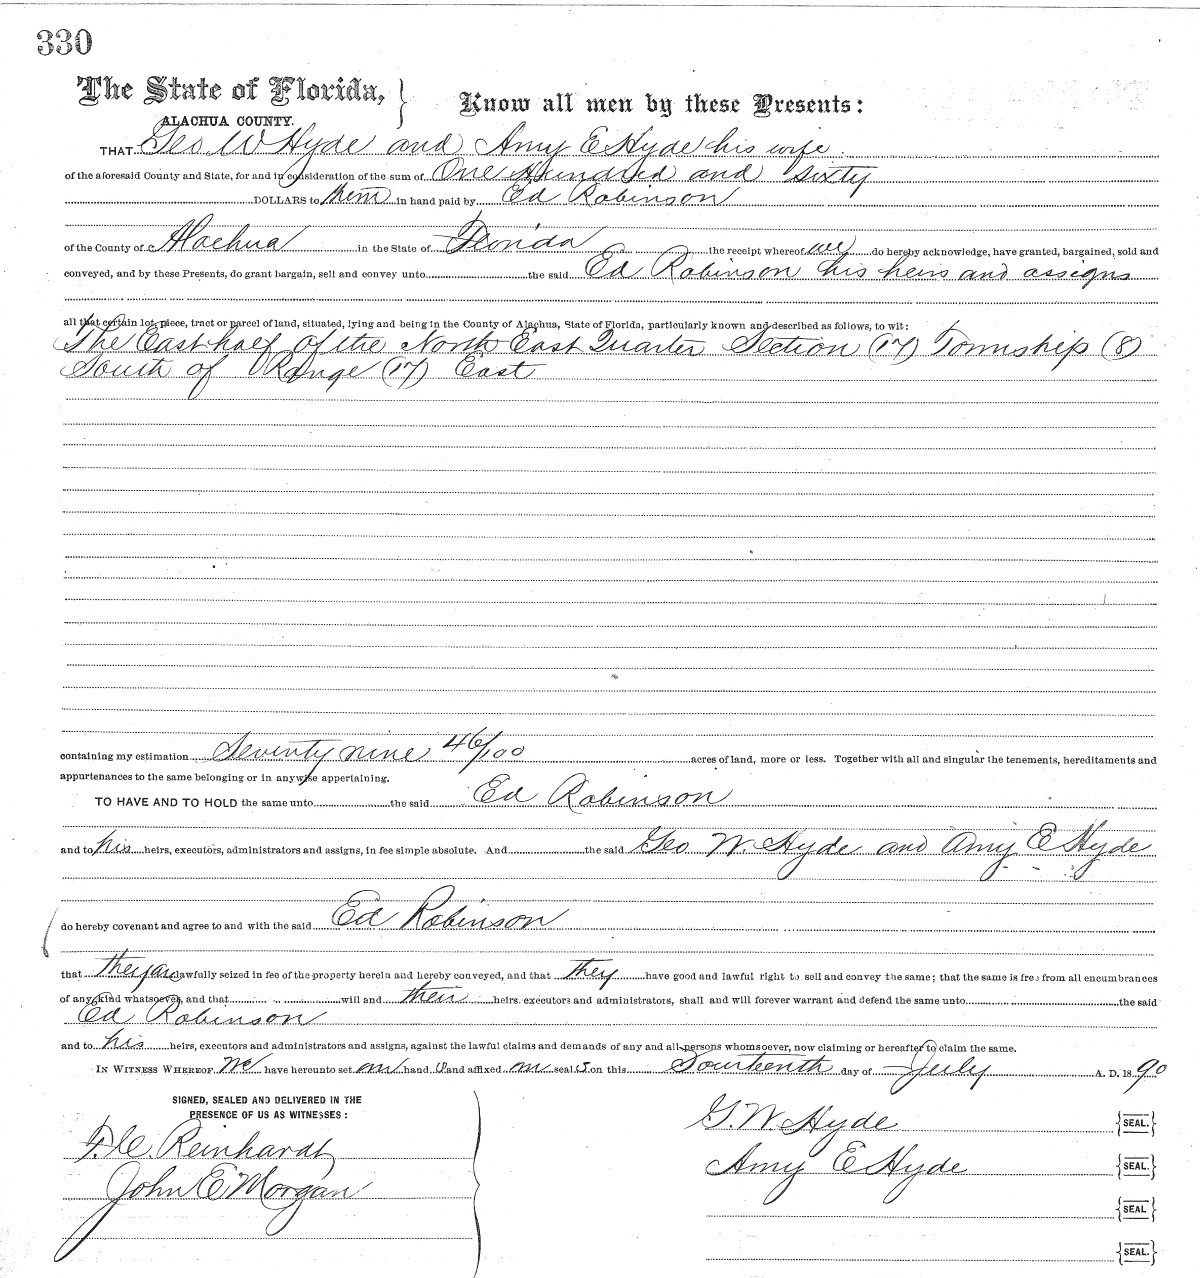 330
The State of Florida, } Know all men by these Presents:
ALACHUA COUNTY.
THAT Geo W Hyde and Amy E Hyde his wife
of the aforesaid County and State, for and in consideration of the sum of One Hundred and Sixty
DOLLARS to them in hand paid by Ed Robinson
of the County of Alachua in the State of Florida the receipt whereof we do hereby acknowledge, have granted, bargained, sold and
conveyed, and by these Presents, do grant bargain, sell and convey unto the said Ed Robinson his heirs and assigns
all that certain lot, piece, tract or parcel of land, situated, lying and being in the County of Alachua, State of Florida, particularly known and described as follows, to wit:
The East half of the North East Quarter Section (17) Township (8)
South of Range (17) East
containing my estimation Seventy nine 46/100 acres of land, more or less. Together with all and singular the tenements, hereditaments and
appurtenances to the same belonging or in anywise appertaining.
TO HAVE AND TO HOLD the same unto the said Ed Robinson
and to his heirs, executors, administrators and assigns, in fee simple absolute. And the said Geo W. Hyde and Amy E Hyde
do hereby covenant and agree to and with the said Ed Robinson
that they are lawfully seized in fee of the property herein and hereby conveyed, and that they have good and lawful right to sell and convey the same; that the same is free from all encumbrances
of any kind whatsoever, and that will and their heirs. executors and administrators, shall and will forever warrant and defend the same unto the said
Ed Robinson
and to his heirs, executors and administrators and assigns, against the lawful claims and demands of any and all persons whomsoever, now claiming or hereafter to claim the same.
IN WITNESS WHEREOF We have hereunto set our hands and affixed our seals on this Fourteenth day of July A. D. 1890
SIGNED, SEALED AND DELIVERED IN THE
PRESENCE OF US AS WITNESSES:
Reinhardt
John E Morgan
G. W. Hyde {SEAL.}
Amy E Hyde {SEAL.}
{SEAL}
{SEAL.}